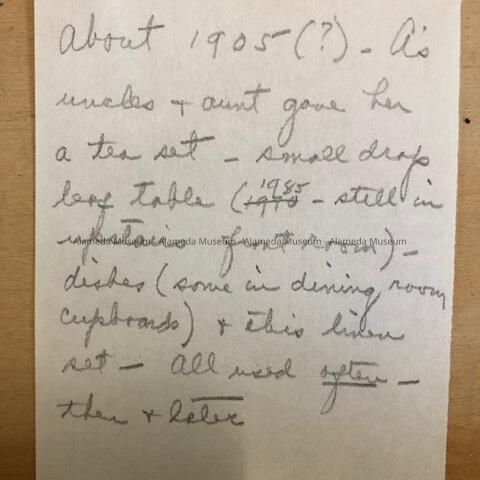 About 1905 (?) - A's
uncles + aunt gave her
a tea set - small drop
leaf table (1970 1985 - still in
upstairs front room) -
Alameda Museum - Alameda Museum - Alameda Museum - Alameda Museum
dishes (some in dining room
cupboards) + this linen
set - All used often -
then + later